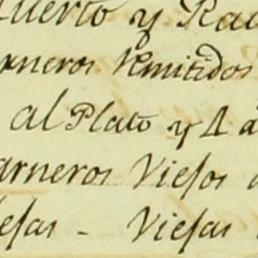 uerto y Ra
arneros Remitidos
al Plato y 1 a
arneros Viejos
ejas - Viejas